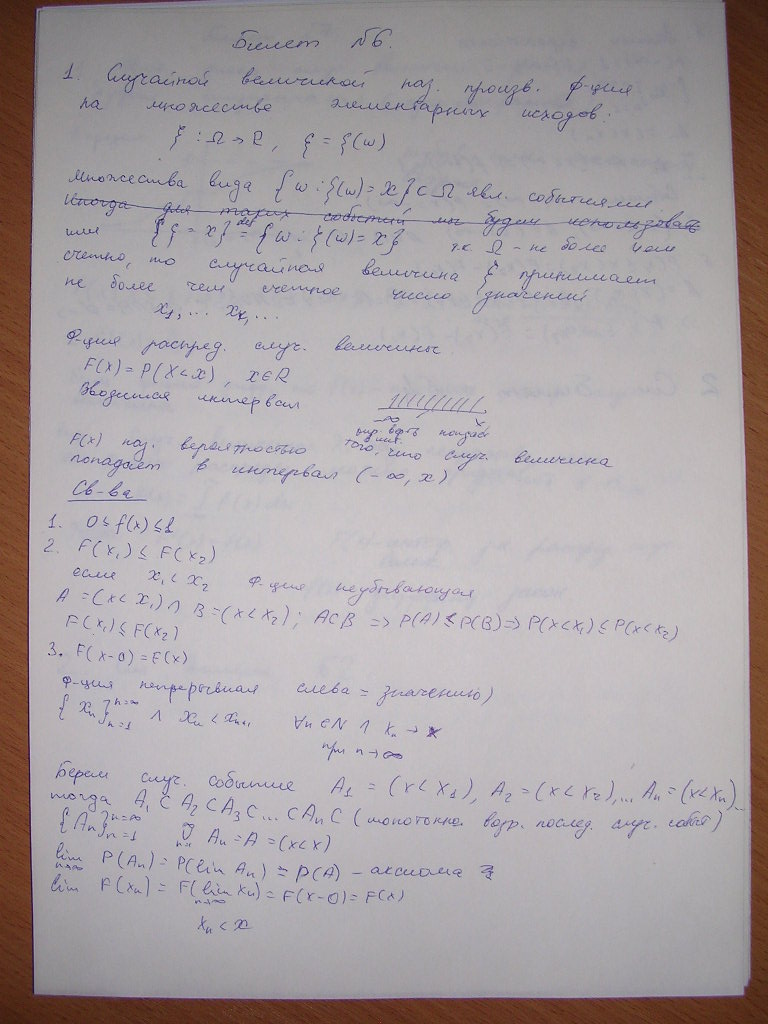 Билет №6.
1. Случайной величиной наз. произв. ф-ция
на множестве элементарных исходов:
ξ : Ω → R, ξ = ξ(ω)
множества вида {ω : ξ(ω) = x} ⊂ Ω явл. событиями
Иногда для таких событий мы будем использовать
или {ξ = x} def= {ω : ξ(ω) = x} т.к. Ω – не более чем
счетно, то случайная величина ξ принимает
не более чем счетное число значений
x₁, ... xₖ, ...
Ф-ция распред. случ. величины
F(x) = P(X < x), x ∈ R
Вводится интервал
-∞ x
F(x) наз. вероятностью того, что случ. величина
попадает в интервал (-∞, x)
Св-ва
1. 0 ≤ f(x) ≤ 1
2. F(x₁) ≤ F(x₂)
если x₁ < x₂ Ф-ция неубывающая
A = (x < x₁) ∧ B = (x < x₂); A⊂B => P(A) ≤ P(B) => P(x < x₁) ≤ P(x < x₂)
F(x₁) ≤ F(x₂)
3. F(x-0) = F(x)
Ф-ция непрерывная слева = значению)
{xₙ}ⁿ⁼∞ₙ₌₁ ∧ xₙ < xₙ₊₁ ∀n ∈ N ∧ xₙ → x
при n → ∞
Берем случ. событие A₁ = (x < x₁), A₂ = (x < x₂), ... Aₙ = (x < xₙ)...
тогда A₁ ⊂ A₂ ⊂ A₃ ⊂ ... ⊂ Aₙ ⊂ (монотонно возр. послед. случ. событ)
{Aₙ}ⁿ⁼∞ₙ₌₁ Aₙ = A = (x < x)
lim n→∞ P(Aₙ) = P(lim Aₙ) = P(A) – аксиома
lim F(xₙ) = F(lim n→∞ xₙ) = F(x-0) = F(x)
xₙ < x